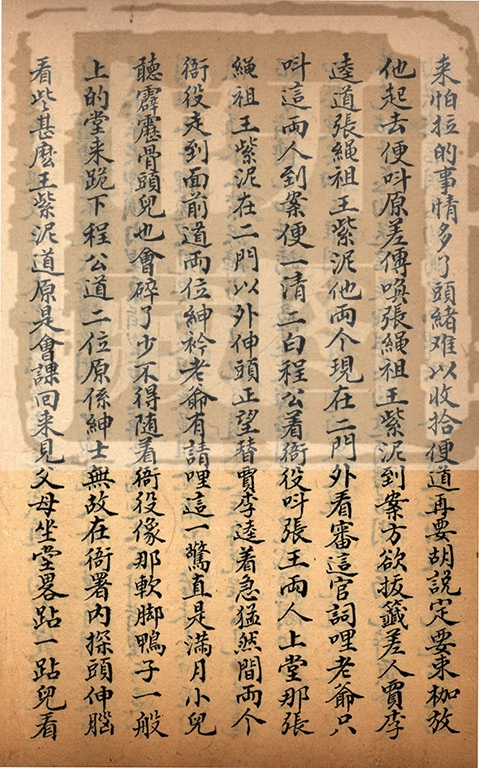 来怕拉的事情多了頭緒难以收拾便道再要胡說定要束枷放
他起去便呌原差傳喚張繩祖王紫泥到案方欲拔籤差人賈李
逵道張繩祖王紫泥他両个現在二門外看審這官詞哩老爺只
呌這両人到案便一清二白程公着衙役呌張王両人上堂那張
繩祖王紫泥在二門以外伸頭正望替賈李逵着急猛然間両个
衙役走到面前道両位紳衿老爺有請哩這一驚直是满月小兒
聽霹靂骨頭兒也會碎了少不得随着衙役像那軟脚鴨子一般
上的堂来跪下程公道二位原係紳士無故在衙署内探頭伸腦
看些甚麽王紫泥道原是會課回来見父母坐堂畧跕一跕兒看